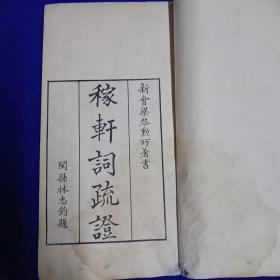 新會梁啓勳所著書
稼軒詞疏證
閩縣林志鈞題